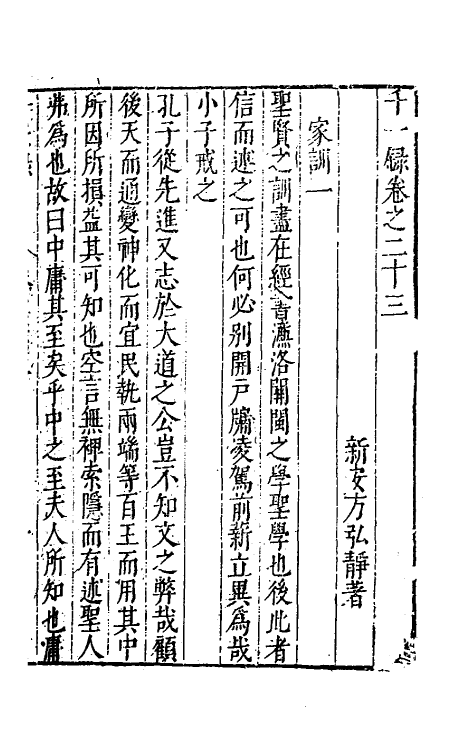 千一錄卷之二十三
新安方弘靜著
家訓一
聖賢之訓盡在經書濂洛關閩之學聖學也後此者
信而述之可也何必别開戸牖凌駕前薪立異爲哉
小子戒之
孔子從先進又志於大道之公豈不知文之弊哉顧
後天而通變神化而宜民執兩端等百王而用其中
所因所損益其可知也空言無裨索隱而有述聖人
弗爲也故曰中庸其至矣乎中之至夫人所知也庸